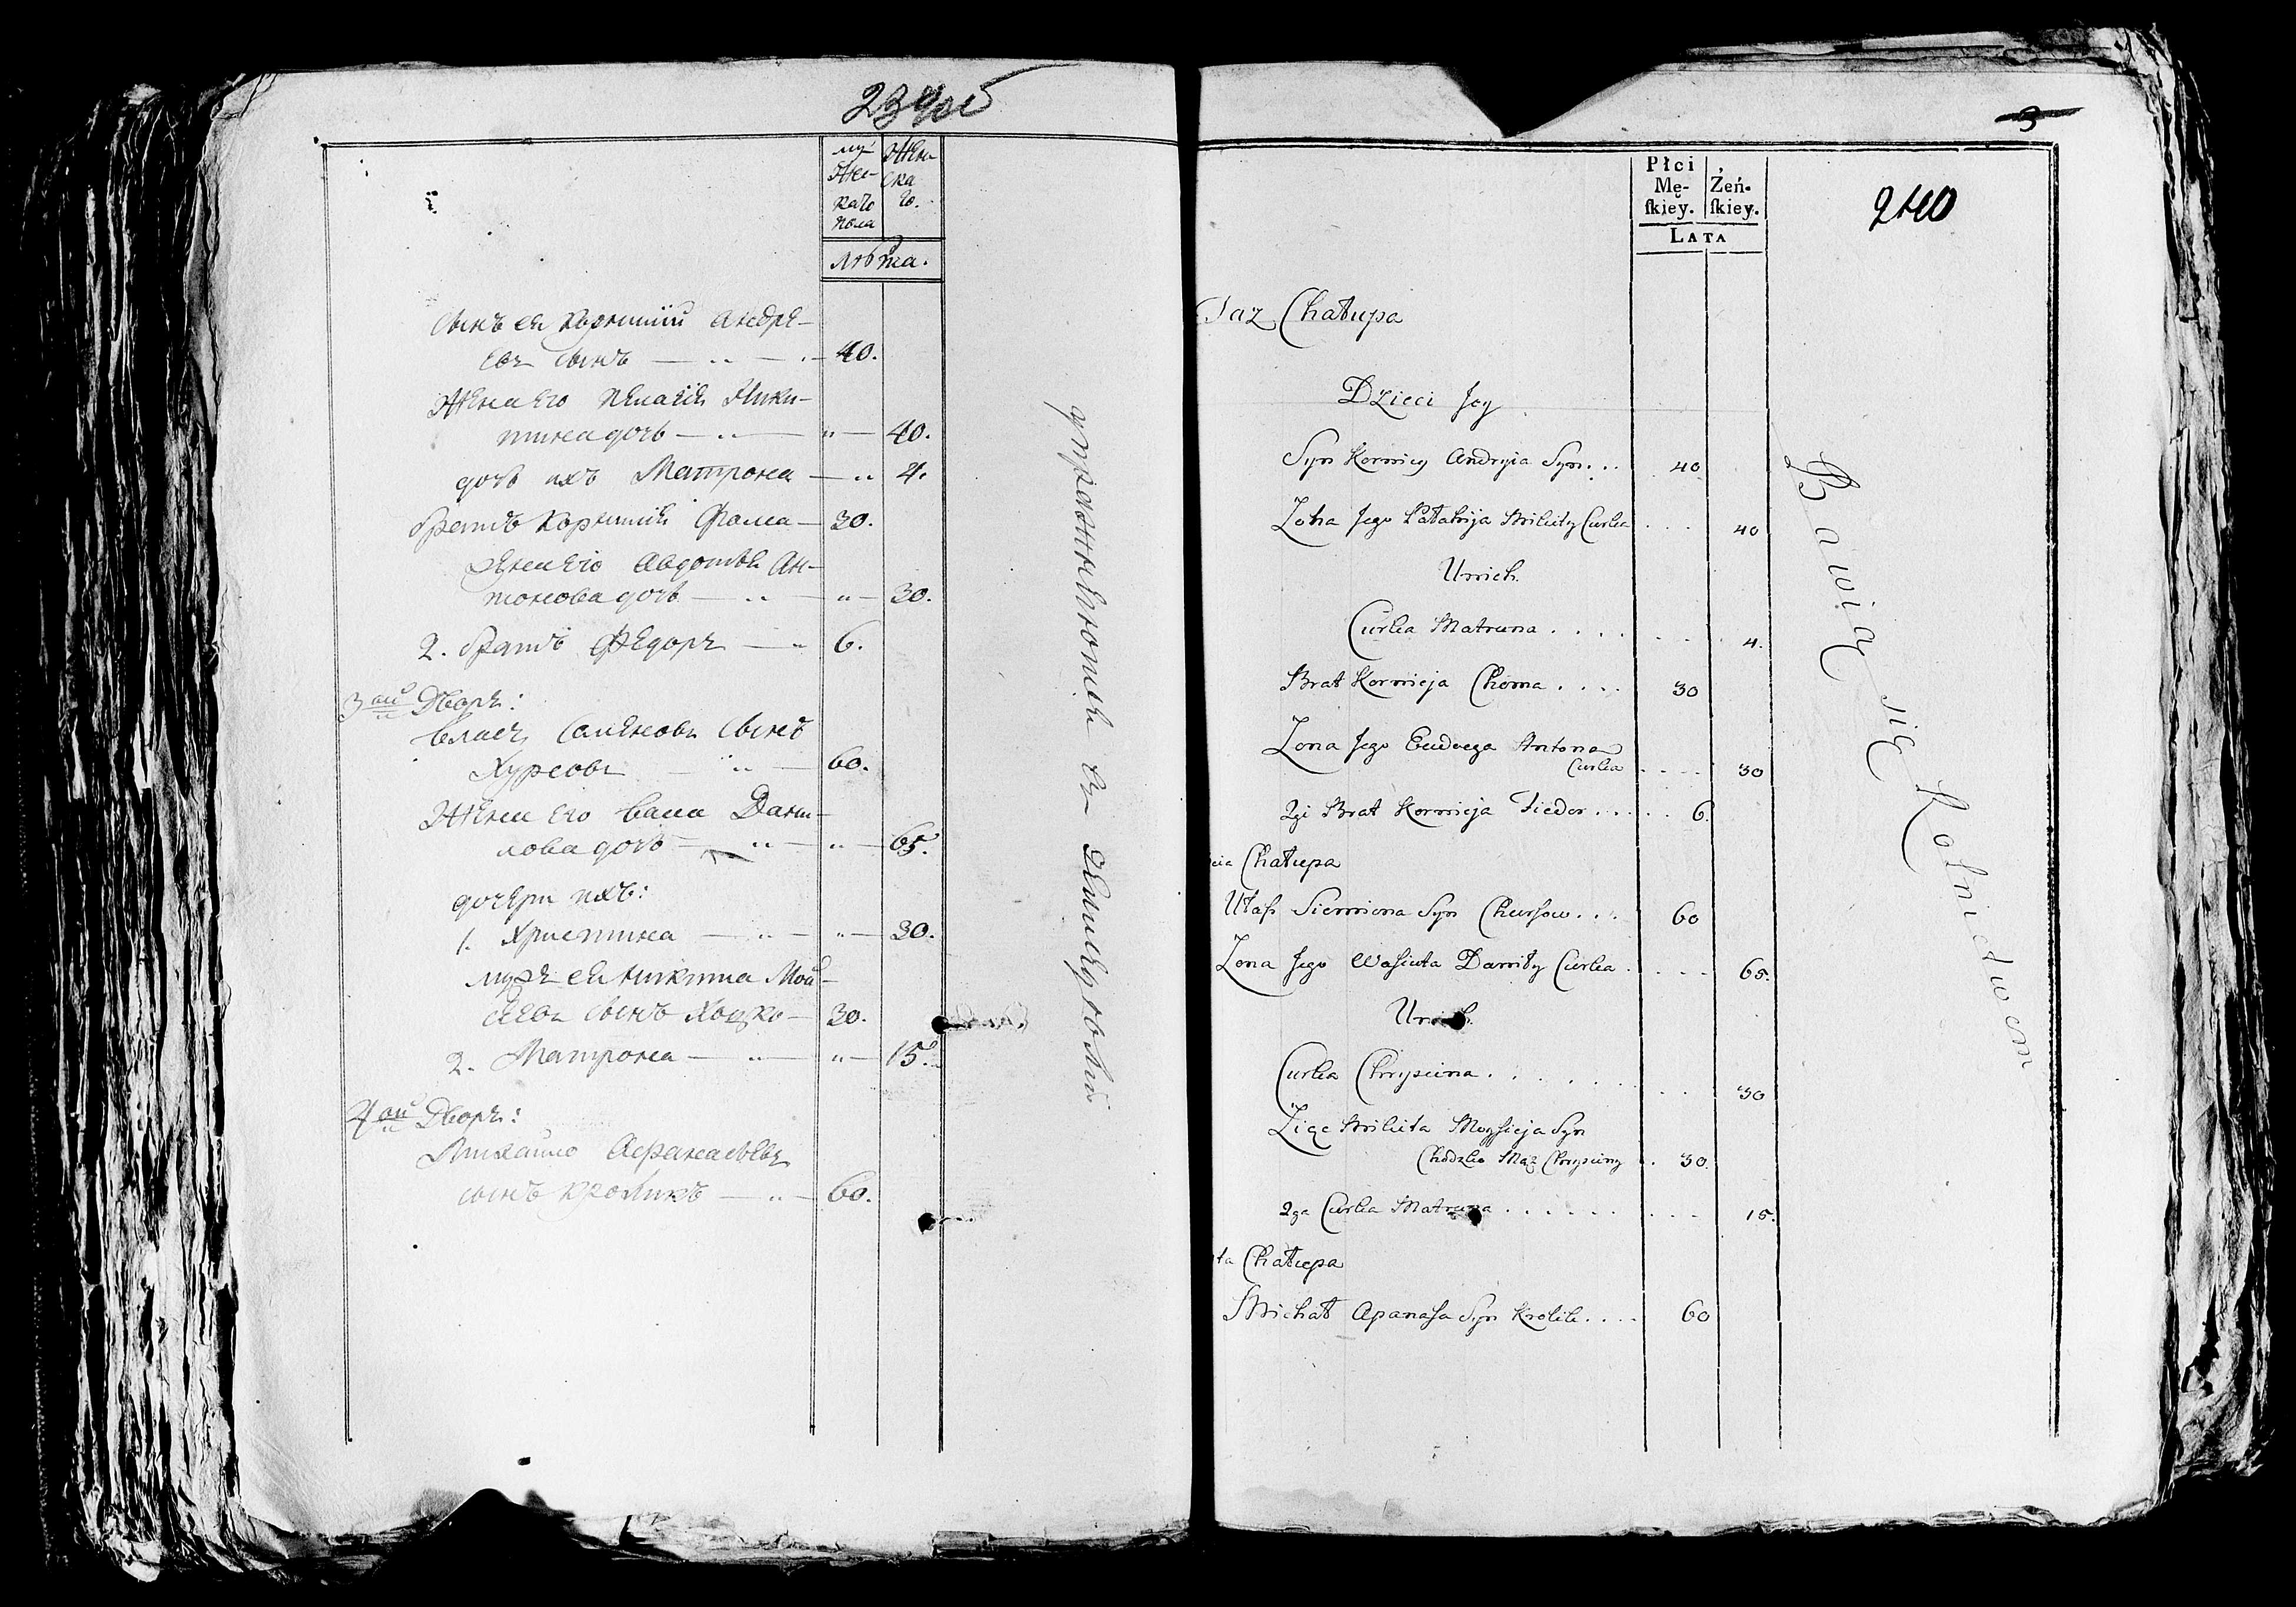 239об
му-
жес-
каго
пола
женска
го.
лѣта.
сынъ ея Корнѣй Андре-
евъ сынъ 40.
жена его Пелагея Ники-
тина дочь 40.
дочь ихъ Матрона 4.
братъ Корнѣя Фома 30.
жена его Авдотья Ан-
тонова дочь 30.
2. братъ Федоръ 6.
3ой Дворъ:
Власъ Семеновъ сынъ
Хурсовъ 60.
жена его Васа Дани-
лова дочь 65.
дочери ихъ:
1. Христина 30.
мужъ ея Никита Мой-
сеевъ сынъ Хоцко 30.
2. Матрона 15.
4ой Дворъ:
Михайло Афанасьевъ
сынъ Кроликъ 60.
упражняются въ земледѣлiи
3
240
Płci
Mę-
skiey.
Żeń-
skiey.
LATA
Taż Chałupa
Dzieci Jey
Syn Korniey Andryia Syn . . . 40
Żona Jego Pałahija Mikity Curka . . . 40
Unich
Curka Matruna . . . . 4.
Brat Kornieja Choma . . . . 30
Żona Jego Eudoega Antona
Curka . . . . 30
2gi Brat Kornieja Fiedor . . . . . 6.
cia Chałupa
Ułass Siemiona Syn Chursow . . . 60
Żona Jego Wasiuta Daniły Curka . . . . 65.
Unich
Curka Chrysiina . . . . . . 30
Zięć Mikita Moysieja Syn
Chodzko Mąż Chrysiny . . 30.
2ga Curka Matruna . . . . . . 15.
ta Chałupa
Michał Apanasa Syn Krolik . . . . 60
Bawią się Rolnictwem